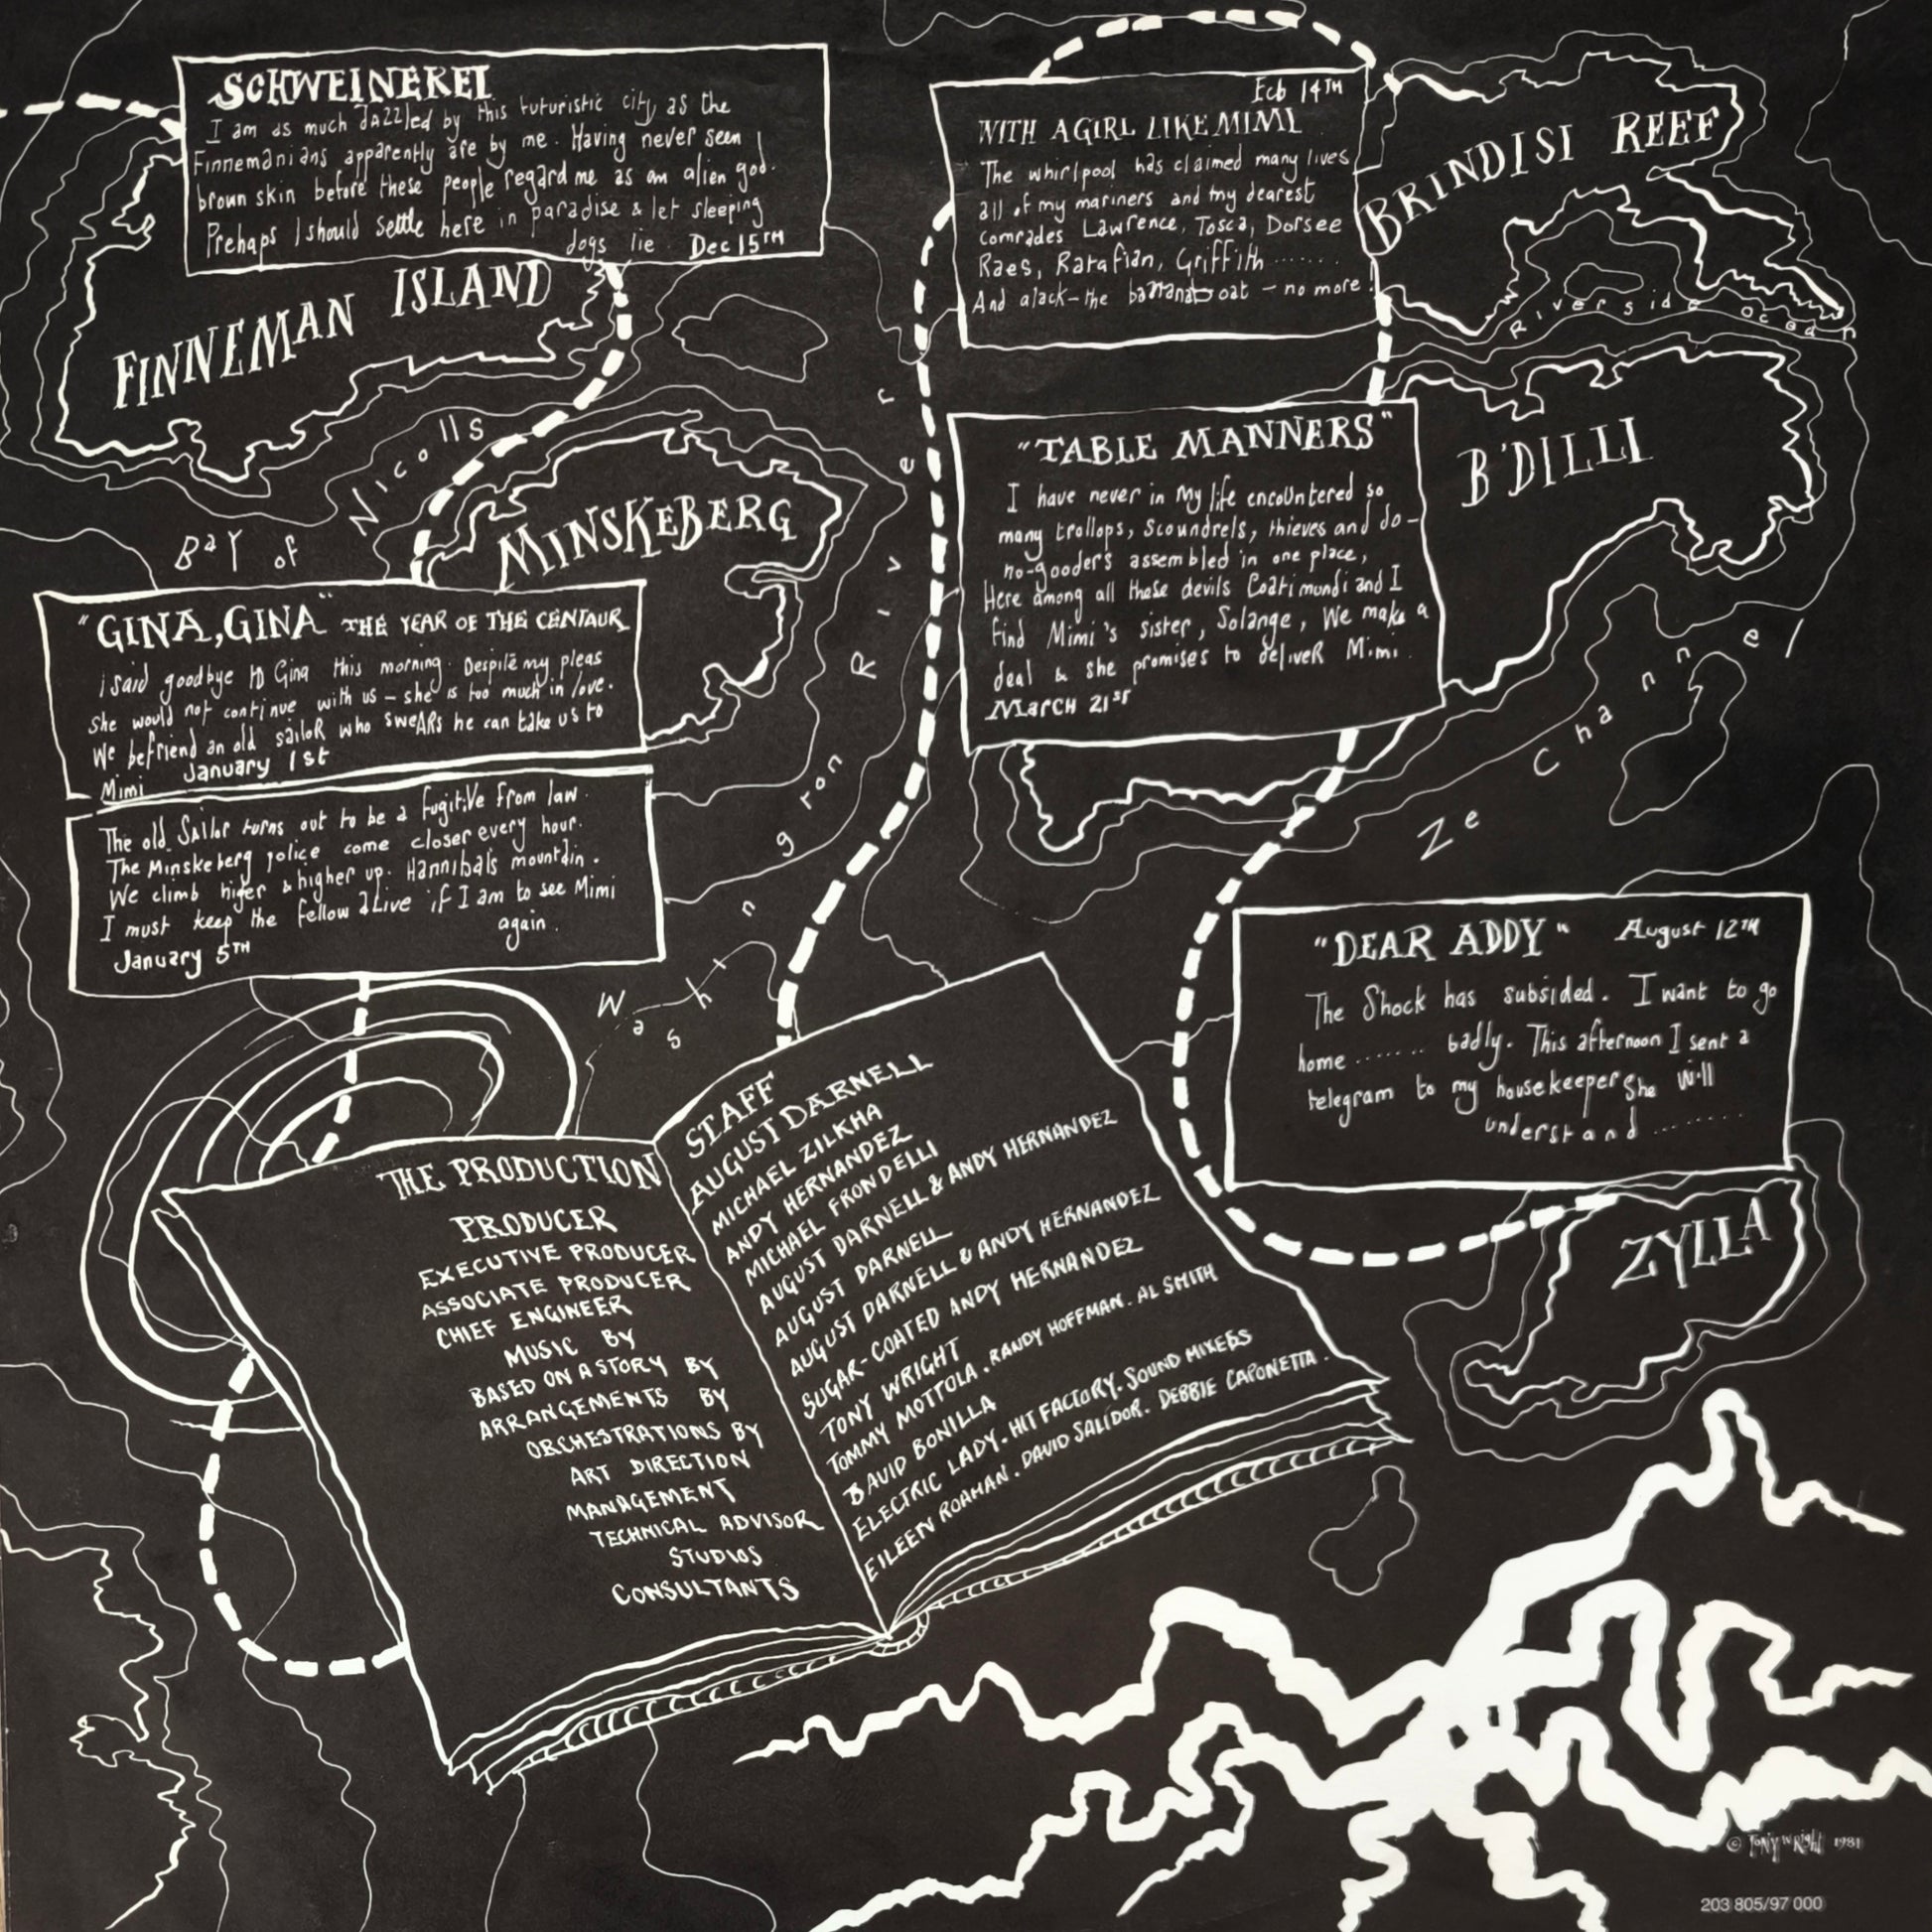 SCHWEINEREI
I am as much dazzled by this futuristic city as the
Finnemanians apparently are by me. Having never seen
brown skin before these people regard me as an alien god.
Prehaps I should settle here in paradise & let sleeping
dogs lie. Dec 15TH
FINNEMAN ISLAND
Bay of Nicolls
MINSKEBERG
"GINA, GINA" THE YEAR OF THE CENTAUR
I said goodbye to Gina this morning. Despite my pleas
she would not continue with us – she is too much in love.
We befriend an old sailor who swears he can take us to
Mimi January 1st
The old Sailor turns out to be a fugitive from law.
The Minskeberg police come closer every hour.
We climb higer & higher up. Hannibals mountain.
I must keep the fellow alive if I am to see Mimi
again.
January 5TH
Washington River
Feb 14TH
WITH A GIRL LIKE MIMI
The whirlpool has claimed many lives
all of my mariners and my dearest
comrades Lawrence, Tosca, Dorsee
Raes, Ratafian, Griffith ........
And alack – the bananaboat – no more!
BRINDISI REEF
Riverside ocean
"TABLE MANNERS"
I have never in my life encountered so
many trollops, scoundrels, thieves and do-
no-gooders assembled in one place,
Here among all these devils Coati mundi and I
find Mimi's sister, Solange, We make a
deal & she promises to deliver Mimi.
March 21st
B'DILLI
Ze Channel
"DEAR ADDY" August 12TH
The Shock has subsided. I want to go
home ....... badly. This afternoon I sent a
telegram to my housekeeper She will
understand .......
ZYLLA
THE PRODUCTION STAFF
PRODUCER AUGUST DARNELL
EXECUTIVE PRODUCER MICHAEL ZILKHA
ASSOCIATE PRODUCER ANDY HERNANDEZ
CHIEF ENGINEER MICHAEL FRONDELLI
MUSIC BY AUGUST DARNELL & ANDY HERNANDEZ
BASED ON A STORY BY AUGUST DARNELL
ARRANGEMENTS BY AUGUST DARNELL & ANDY HERNANDEZ
ORCHESTRATIONS BY SUGAR-COATED ANDY HERNANDEZ
ART DIRECTION TONY WRIGHT
MANAGEMENT TOMMY MOTTOLA. RANDY HOFFMAN. AL SMITH
TECHNICAL ADVISOR DAVID BONILLA
STUDIOS ELECTRIC LADY. HIT FACTORY. SOUND MIXERS
CONSULTANTS EILEEN ROAMAN. DAVID SALIDOR. DEBBIE CAPONETTA.
© Tony Wright 1981
203 805/97 000